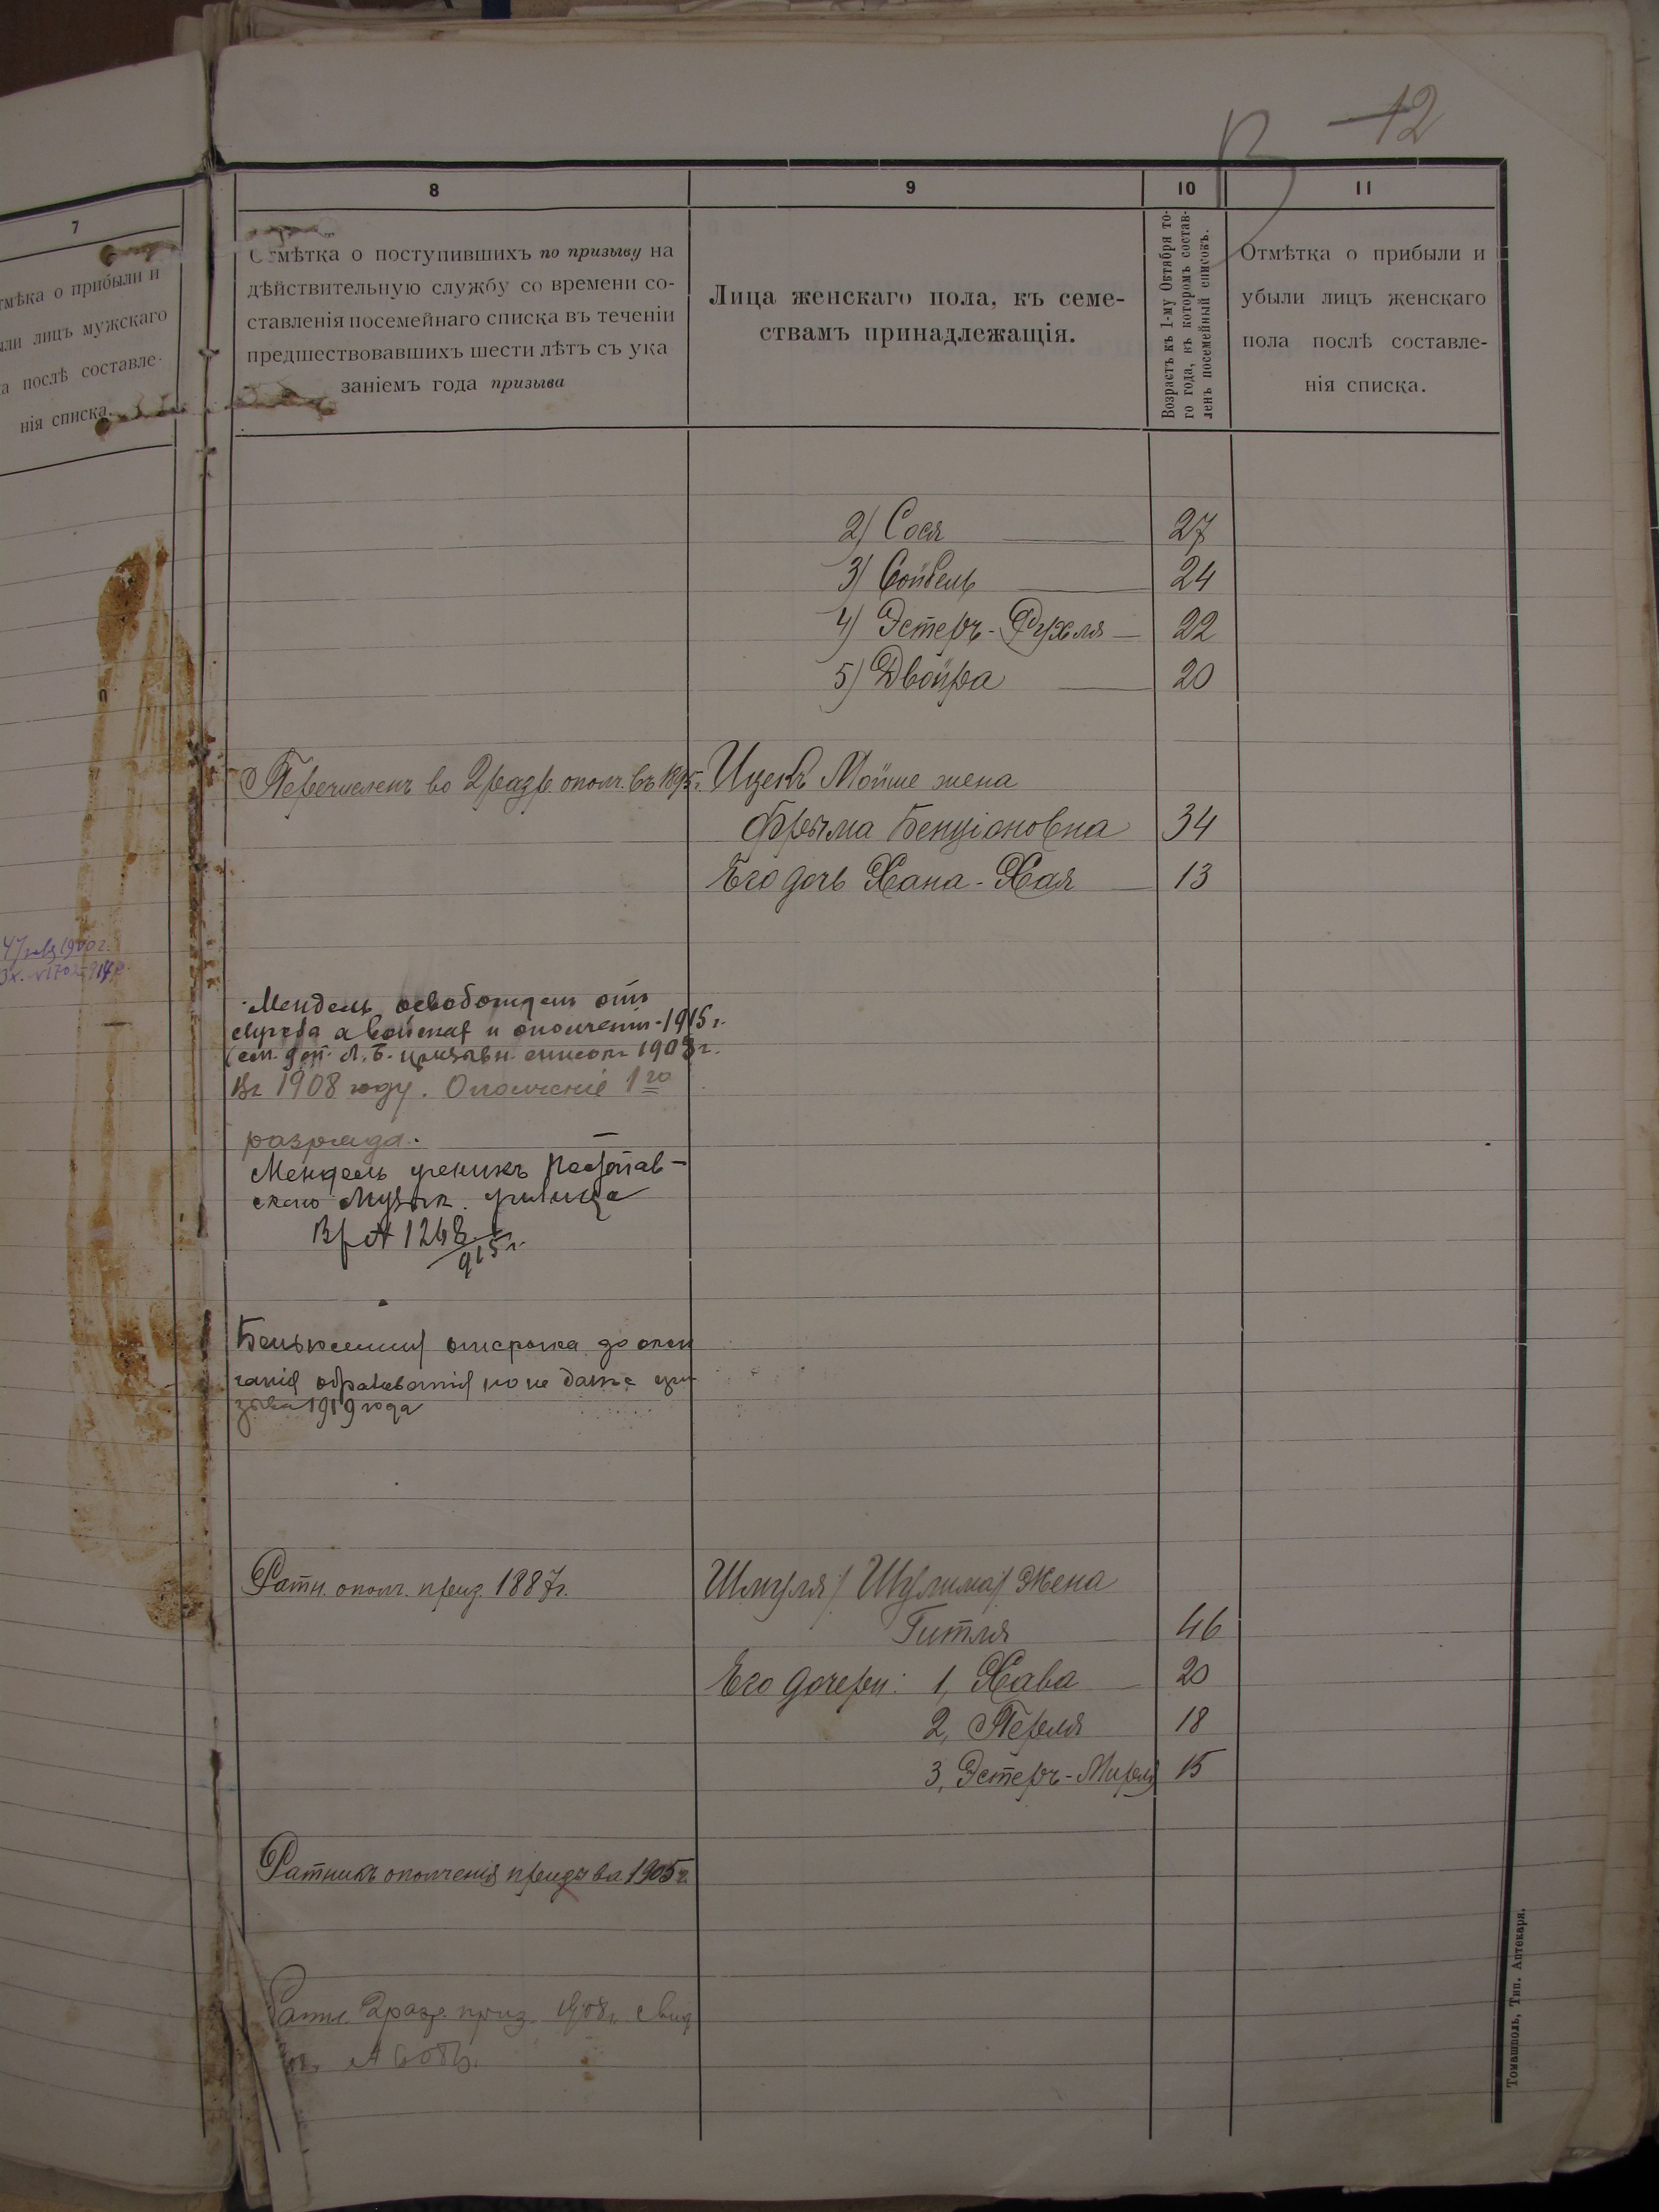 12
7
тмѣка о прибыли и
ыли лицъ мужскаго
а послѣ составле-
нія списка.
8
9
10
11
Отмѣтка о поступившихъ по призыву на
дѣйствительную службу со времени со-
ставленія посемейнаго списка въ теченіи
предшествовавшихъ шести лѣтъ съ ука
заніемъ года призыва
Лица женскаго пола, къ семе-
ствамъ принадлежащія.
Возрастъ къ 1-му Октября то-
го года, въ которомъ состав-
ленъ посемейный списокъ.
Отмѣтка о прибыли и
убыли лицъ женскаго
пола послѣ составле-
нія списка.
2) Сося 27
3) Сойбель 24
4) Эстеръ-Рухля 22
5) Двойра 20
Перечисленъ во 2 разр. ополч. въ 1895 г. Ицекъ Мойше жена
Фрыма Бенціоновна 34
Его дочь Хана-Хая 13
Мендель освобожден отъ
службы в войсках и ополченіи 1915 г.
призывн. список 1908 г.
Въ 1908 году. Ополченіе 1го
разряда.
Мендель ученикъ Полтав-
скаго Музык. училища
1268
915 г.
отсрочка до окон
чанія образованія но не далѣе при
зыва 1919 года
Ратн. ополч. приз. 1887 г. Шмуля / Шулима / Жена
Гитля 46
Его дочери: 1, Хава 20
2, Перля 18
3, Эстеръ-Мирля 15
Ратникъ ополченія призыва 1905 г.
Ратн. 2 разр. приз. 1908 г. свид
Томашполь, Тип. Аптекаря.